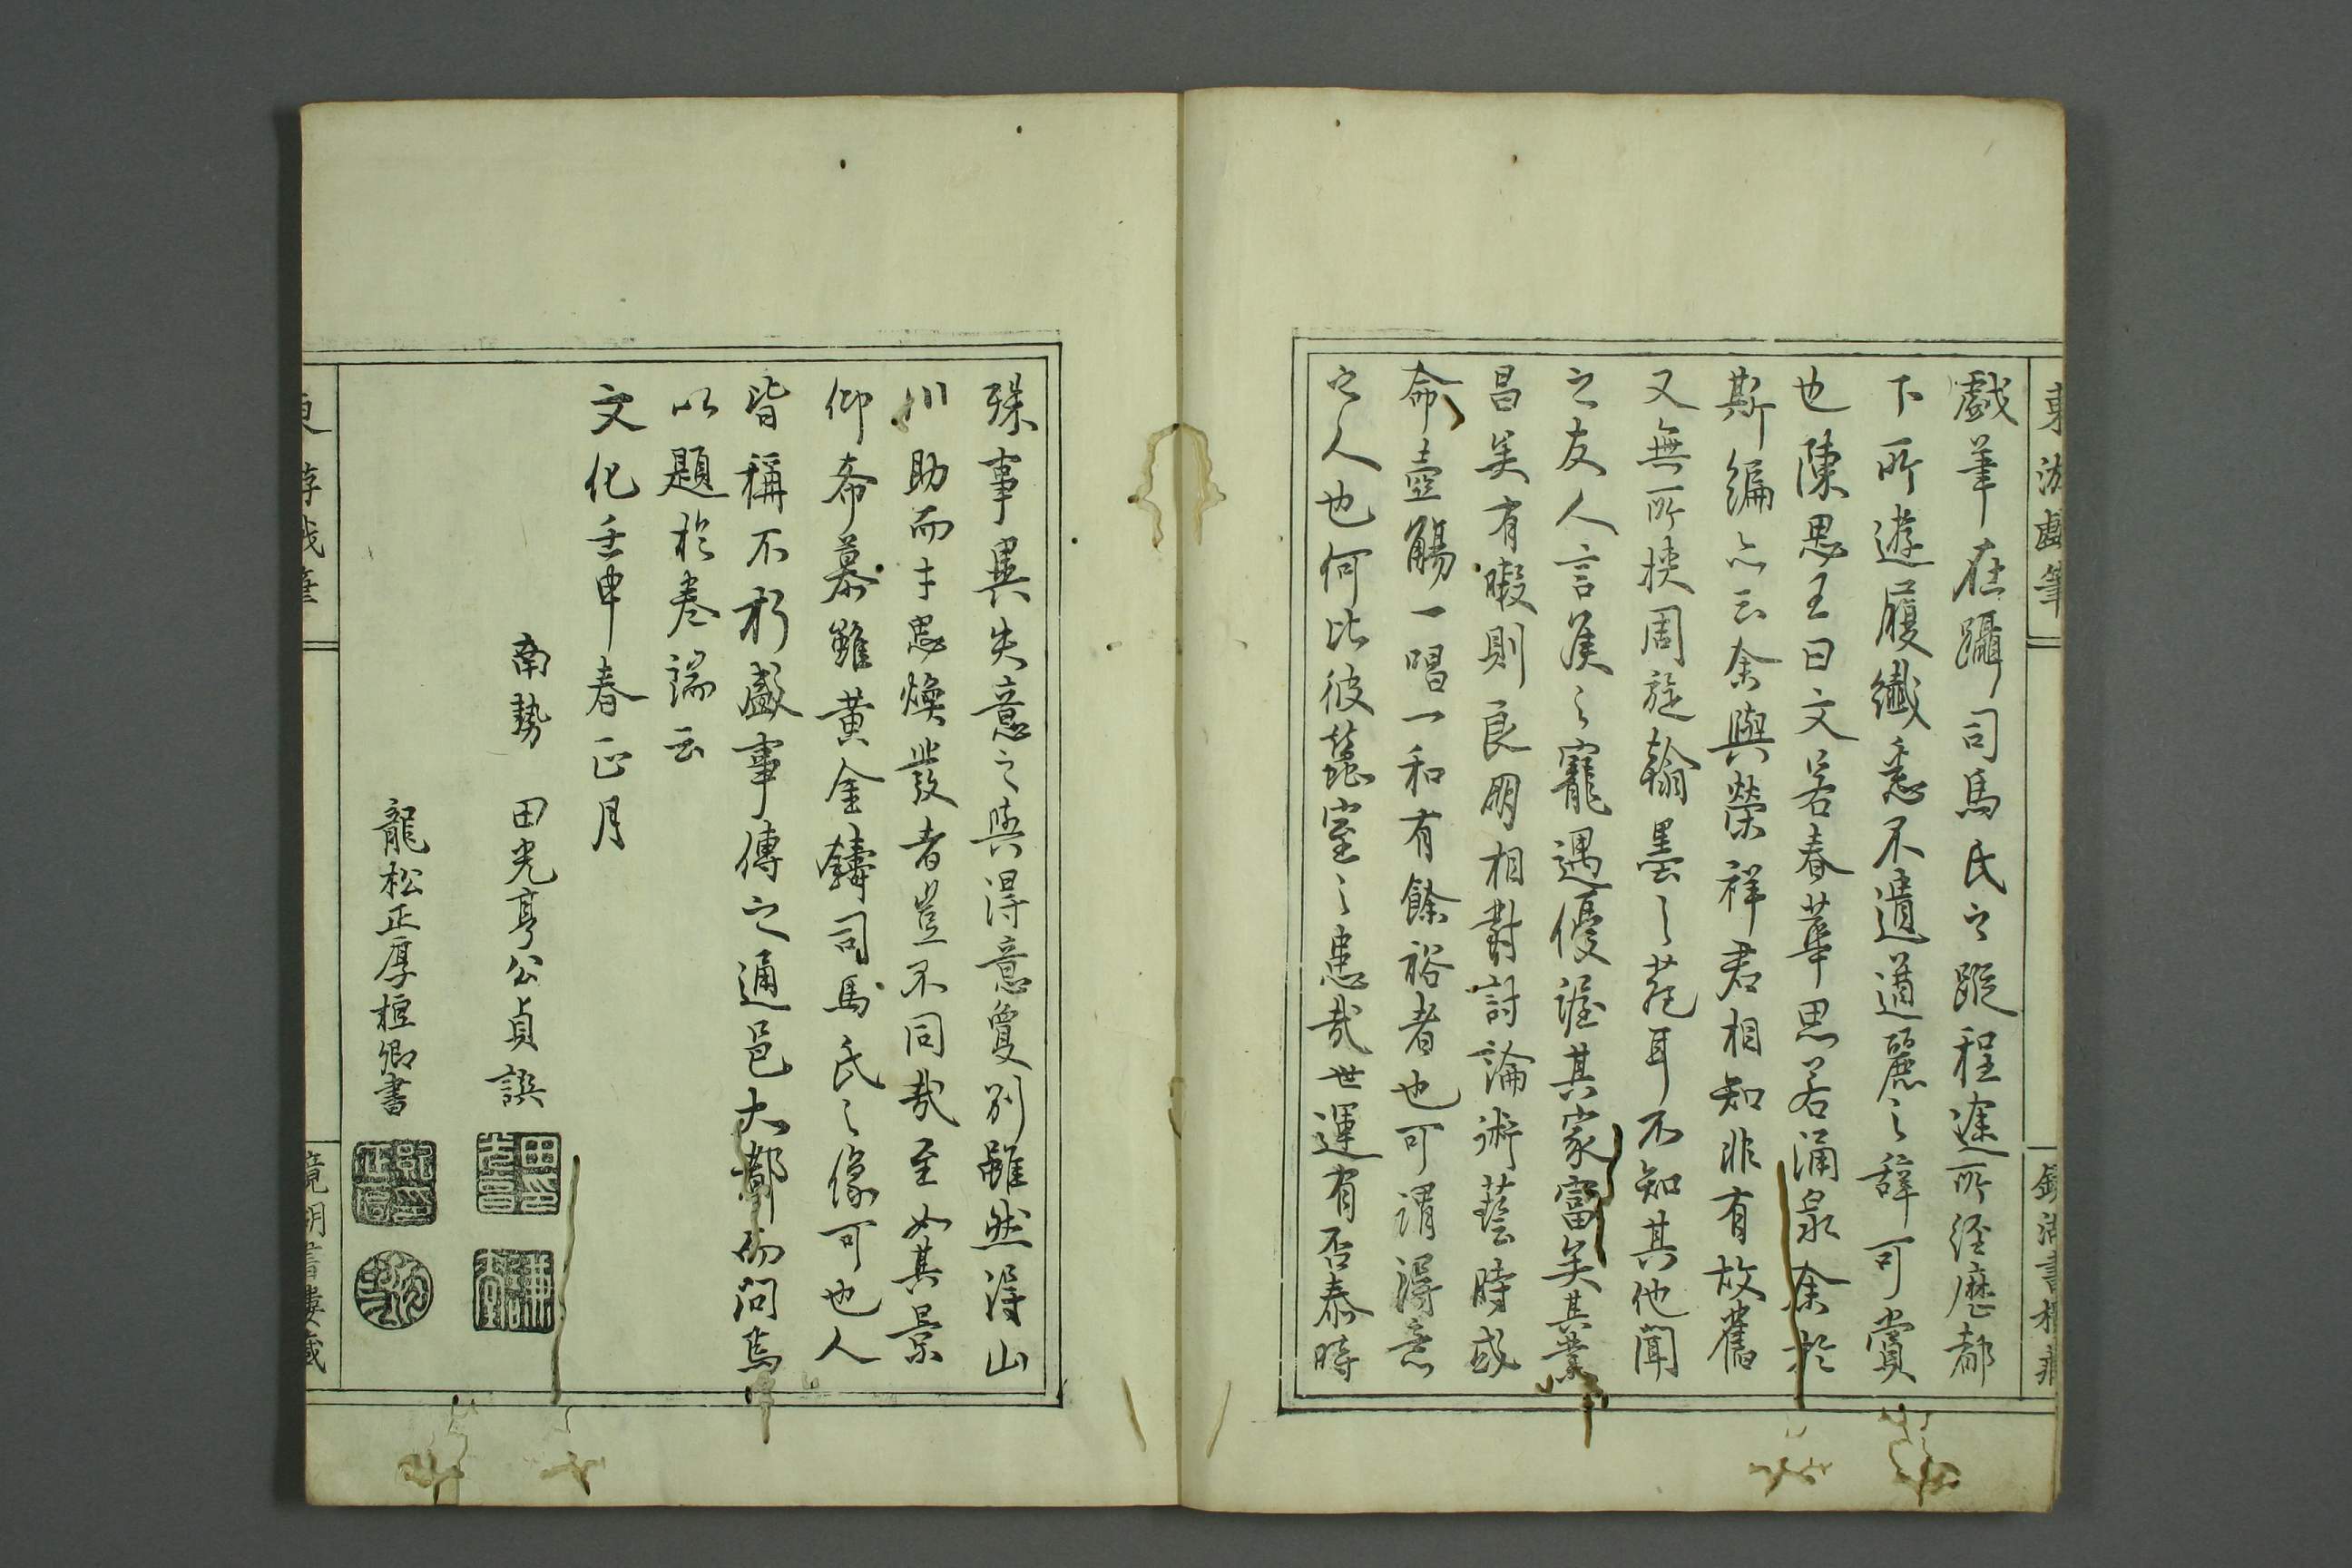 戯筆在躡司馬氏之蹤程途所経歴都
下所遊履纎悉不遺遒麗之辞可賞
也陳思王曰文若春華思若涌泉余於
斯編亦云余與榮祥君相知非有故舊
又無所挟周旋翰墨之苑耳不知其他聞
之友人言侯之寵遇優渥其家富矣其業
昌矣有暇則良朋相對討論術藝時或
命壺觴一唱一和有餘裕者也可謂得意
之人也何比彼蚕室之患哉世運有否泰時
殊事異失意之與得意夐別雖然得山
川助而才思煥發者豈不同哉至如其景
仰希慕雖黄金鑄司馬氏之像可也人
皆稱不朽盛事傳之通邑大都而問焉
以題於巻端云
文化壬申春正月
南勢 田光亨公貞譔
龍松正厚桓卿書